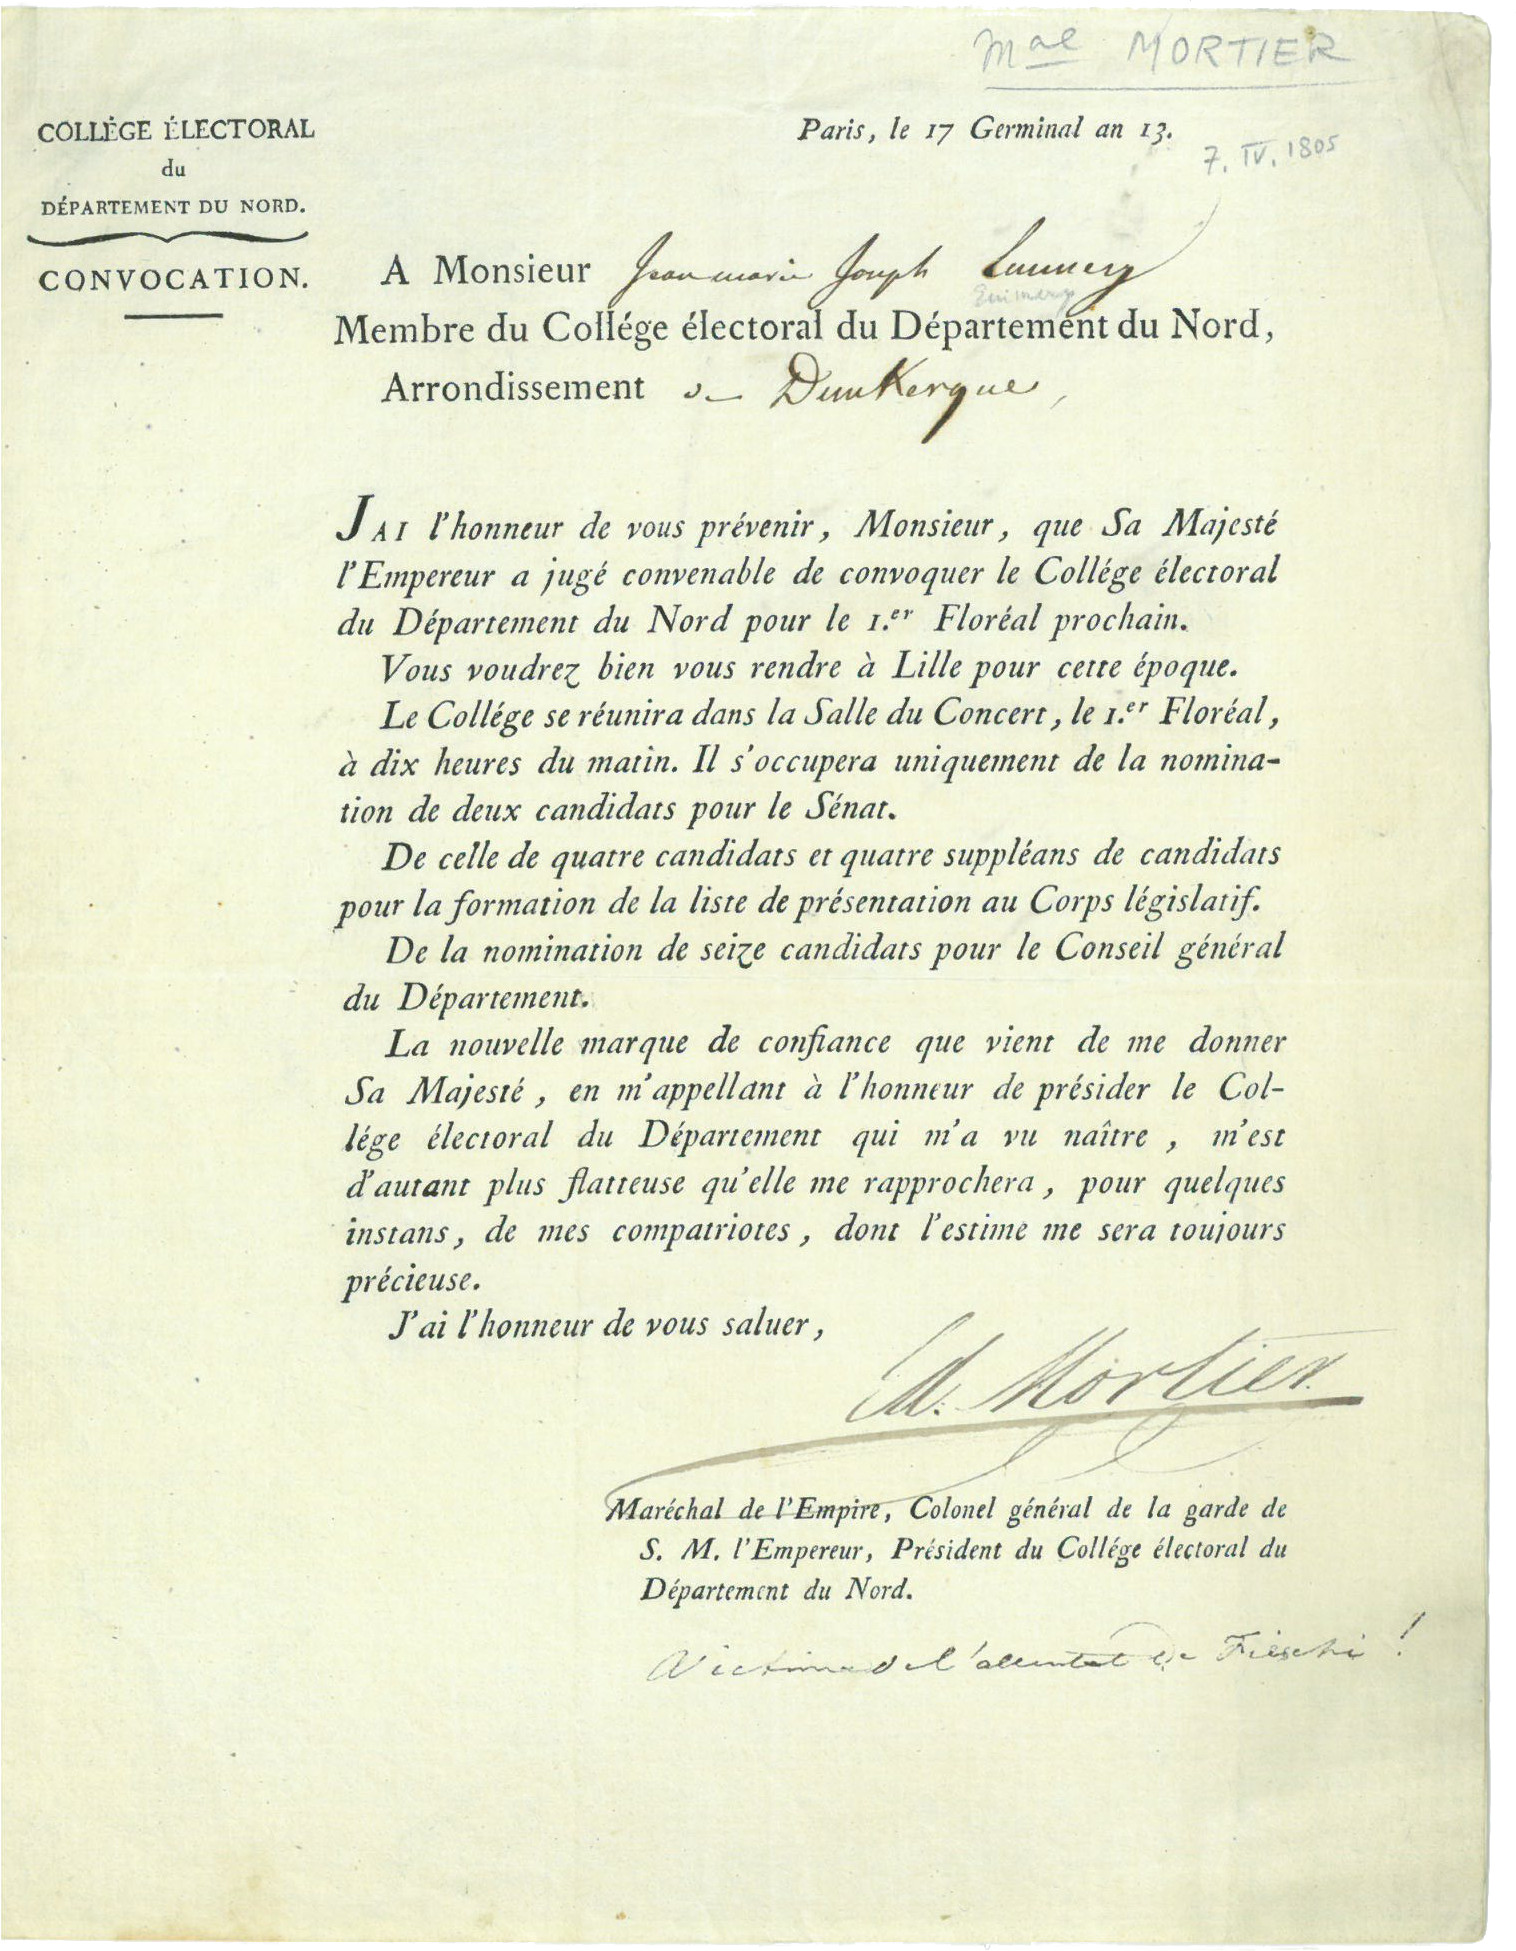 Mal MORTIER
COLLÉGE ÉLECTORAL
du
DÉPARTEMENT DU NORD.
CONVOCATION.
Paris, le 17 Germinal an 13.
7. IV. 1805
A Monsieur Jean marie Joseph
Membre du Collége électoral du Département du Nord,
Arrondissement de Dunkerque,
JAI l'honneur de vous prévenir, Monsieur, que Sa Majesté
l'Empereur a jugé convenable de convoquer le Collége électoral
du Département du Nord pour le 1.er Floréal prochain.
Vous voudrez bien vous rendre à Lille pour cette époque.
Le Collége se réunira dans la Salle du Concert, le 1.er Floréal,
à dix heures du matin. Il s'occupera uniquement de la nomina-
tion de deux candidats pour le Sénat.
De celle de quatre candidats et quatre suppléans de candidats
pour la formation de la liste de présentation au Corps législatif.
De la nomination de seize candidats pour le Conseil général
du Département.
La nouvelle marque de confiance que vient de me donner
Sa Majesté, en m'appellant à l'honneur de présider le Col-
lége électoral du Département qui m'a vu naître, m'est
d'autant plus flatteuse qu'elle me rapprochera, pour quelques
instans, de mes compatriotes, dont l'estime me sera toujours
précieuse.
J'ai l'honneur de vous saluer,
Ed. Mortier.
Maréchal de l'Empire, Colonel général de la garde de
S. M. l'Empereur, Président du Collége électoral du
Département du Nord.
Victime de l'attentat de Fieschi !